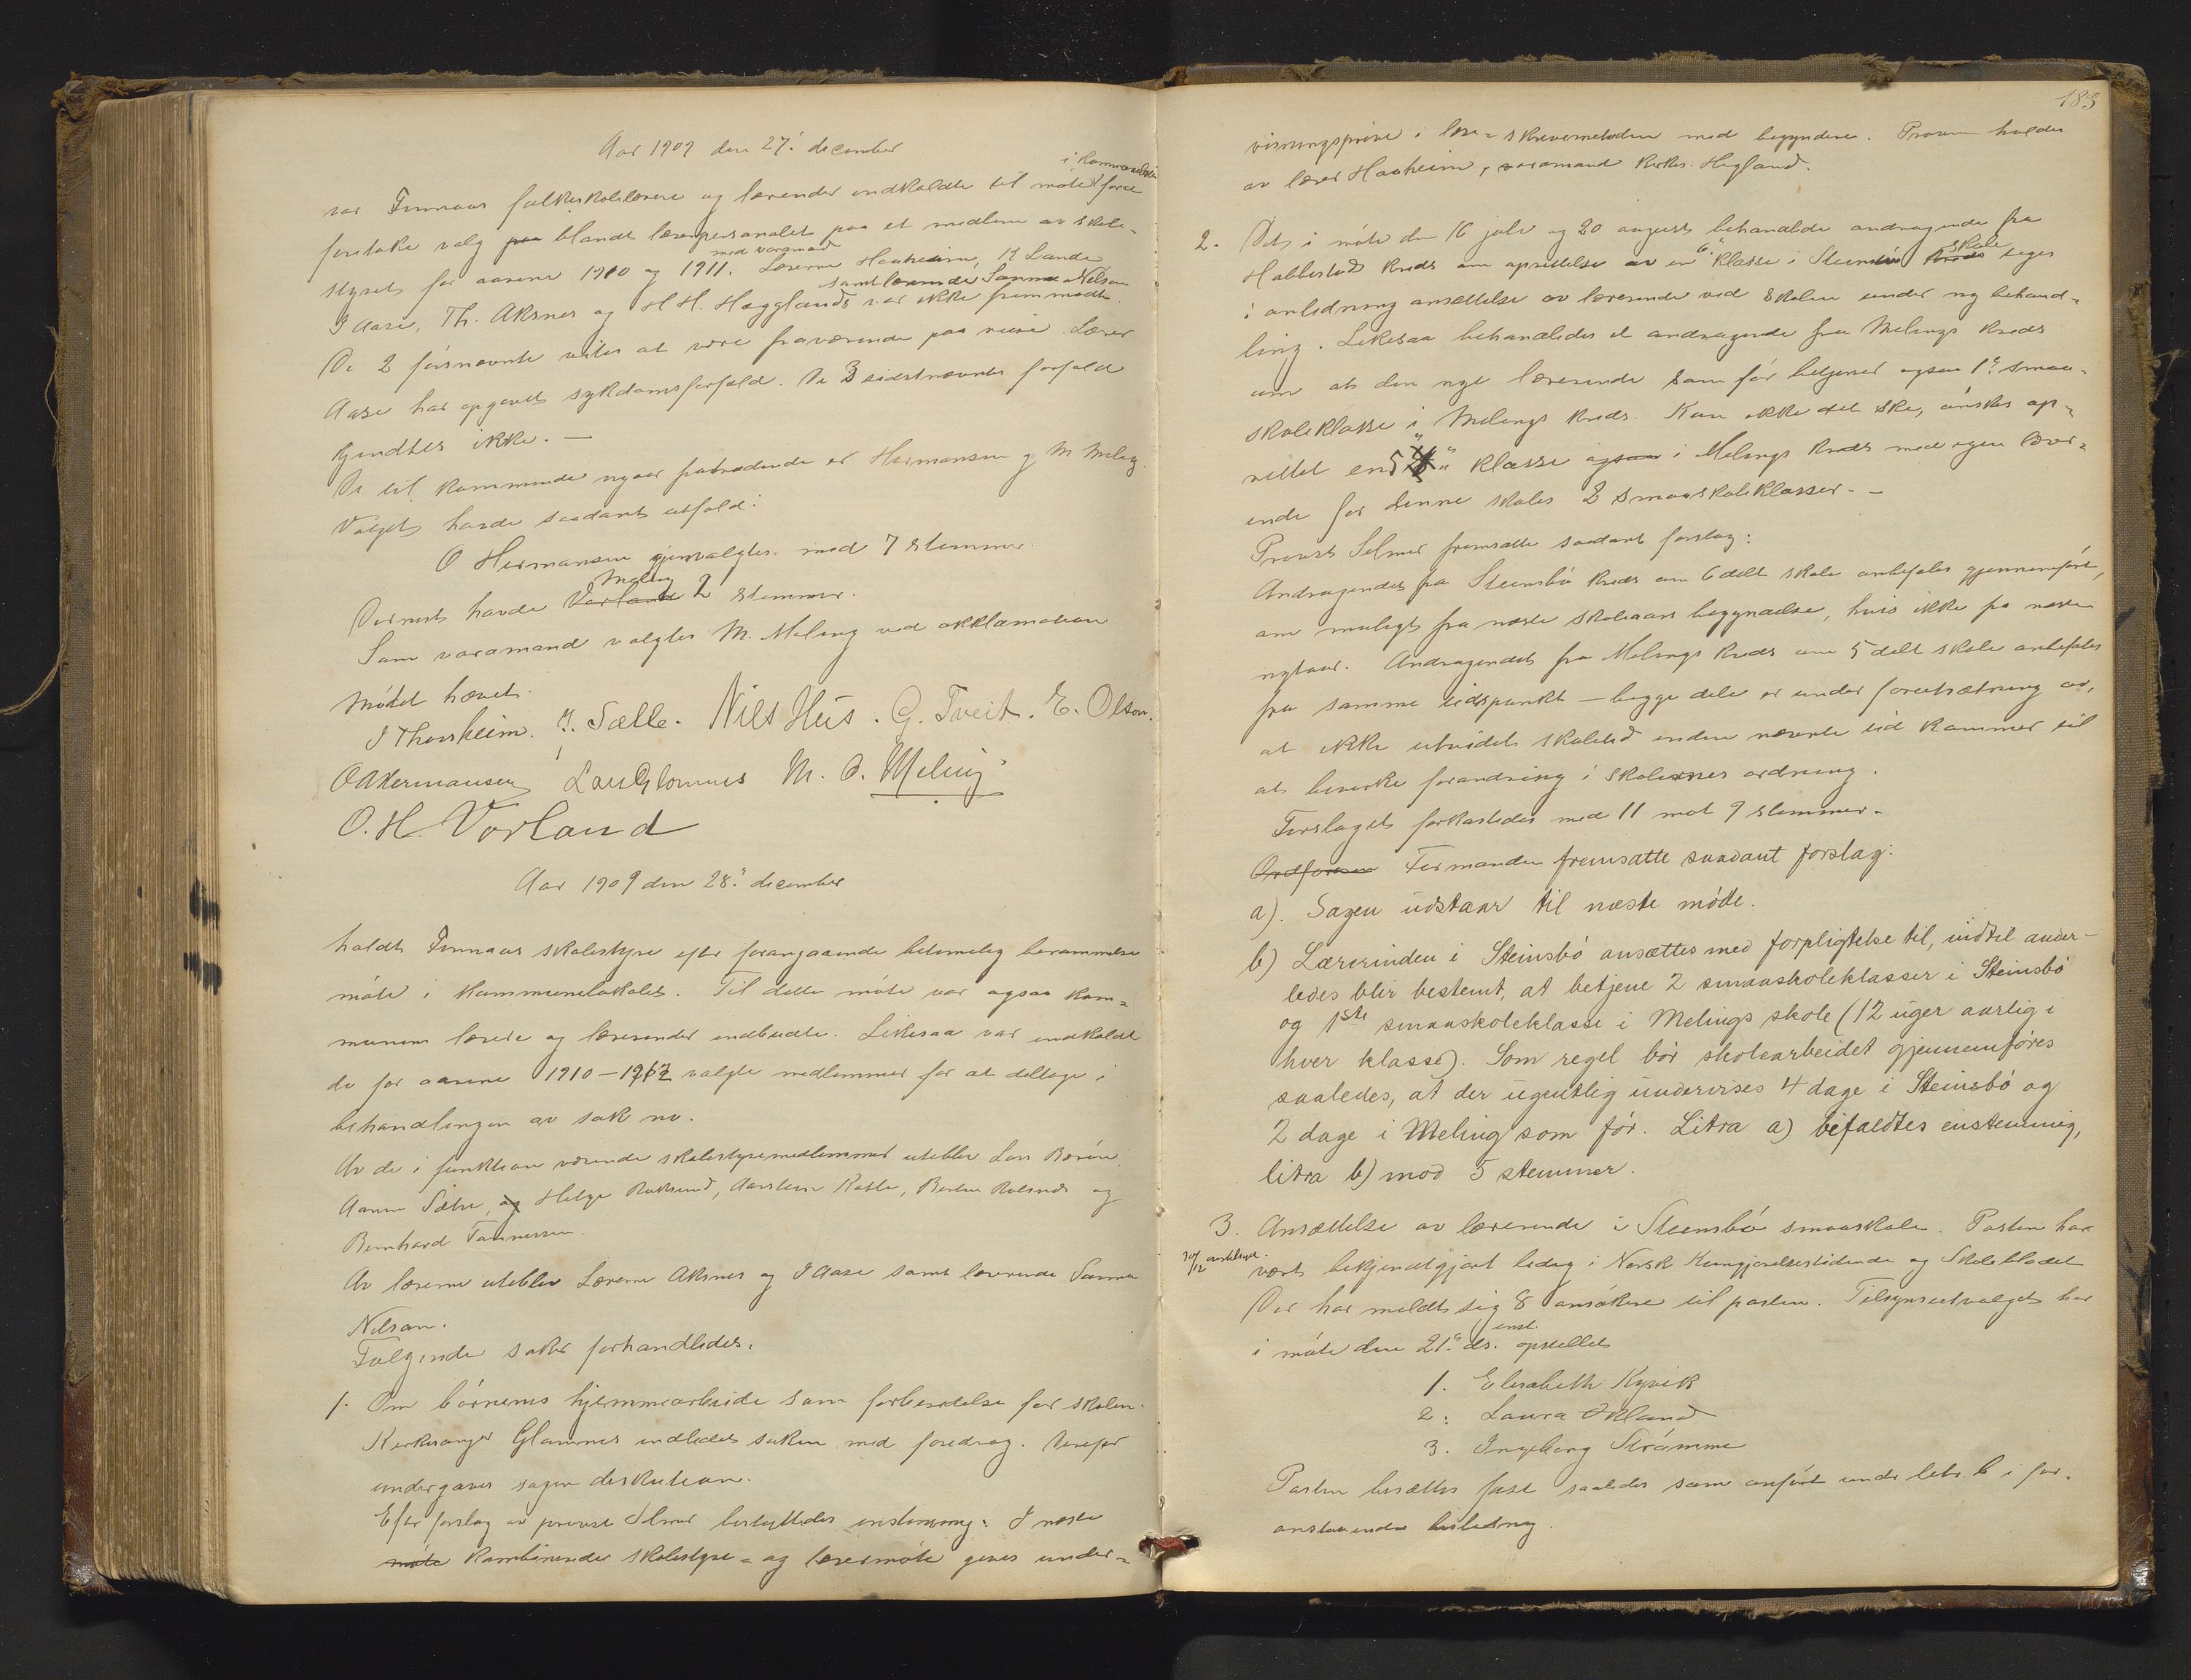 Aar 1909 den 27' december
var Finnaas folkeskolelærere og lærerinder indkaldte til møte i kommunelokalet for at
foretake valg paa blandt lærerpersonalet paa et medlem av skole-
styret med varamand for aarene 1910 og 1911. Lærerne Haaheim, K Lande
I Aase, Th. Aksnes og H H. Hægglands samt lærerinde Sanna Nilsen var ikke fremmødt.
De 2 førsnævnte vites at være fraværende paa reise. Lærer
Aase har opgivet sykdomsforfald. De 3 sidstnævntes forfald
kjendtes ikke. —
De til kommende nyaar fratrædende er Hermansen og M Meling.
Valget havde saadant utfald:
O Hermansen gjenvalgtes med 7 stemmer.
Dernest havde Vorland Meling 2 stemmer.
Som varamand valgtes M. Meling ved akklamation
Mødet hævet.
I Thorsheim. J. Sælle. Nils Hus. G. Tveit. E. Olson.
O Hermansen Lars Glomnes M. O. Meling
O. H. Vorland
Aar 1909 den 28' december
holdt Finnaas skolestyre efter forangaaende betimelig berammelse
møte i kommunelokalet. Til dette møte var ogsaa kom-
munens lærere og lærerinder indbudte. Likesaa var indkaldt
de for aarene 1910–1912 valgte medlemmer for at deltage i
behandlingen av sak no.
Av de i funktion værende skolestyremedlemmer uteblev Lars Børøen
Aamu Sætre, og Helge Røksund, Aarstein Katle, Berter Rolsnes og
Bernhard Tønnesen.
Av lærerne uteblev Lærerne Aksnes og I Aase samt lærerinde Sanna
Nilsen.
Følgende saker forhandledes.
1. Om børnenes hjemmearbeide som forberedelse for skolen.
Kirkesanger Glomnes indledet saken med foredrag. Derefter
undergaves sagen diskution.
Efter forslag av provst Selmer besluttedes enstemmig: I næste
møte kombinerede skolestyre- og lærermøte gives under-
183
visningsprøve i læse- skrivemetoden med begyndere. Prøven holdes
av lærer Haaheim, varamand kirkes. Hegland.
2. Det i møte den 16 juli og 20 august behandlede andragende fra
Habbestad kreds om oprettelse av en 6" klasse i Steinsbø kreds skole toges
i anledning ansættelse av lærerinde ved skolen under ny behand-
ling. Likesaa behandledes et andragende fra Melings kreds
om at den nye lærerinde som før betjener ogsaa 1" smaa-
skoleklasse i Melings kreds. Kan ikke det ske, ønskes op-
rettet en 5" klasse ogsaa i Melings kreds med egen lærer-
inde for denne skoles 2 smaaskoleklasser. —
Provst Selmer fremsatte saadant forslag:
Andragendet fra Steinsbø kreds om 6delt skole anbefales gjennemført,
om muligt fra næste skoleaars begyndelse, hvis ikke fra næste
nytaar. Andragendet fra Melings kreds om 5 delt skole anbefales
fra samme tidspunkt – begge dele er under forutsætning av,
at ikke utvidet skoletid inden nævnte tid kommer til
at bevirke forandring i skolernes ordning.
Forslaget forkastedes med 11 mot 9 stemmer.
Ordføreren Formanden fremsatte saadant forslag:
a). Sagen udstaar til næste møde.
b) Lærerinden i Steinsbø ansættes med forpligtelse til, indtil ander-
ledes blir bestemt, at betjene 2 smaaskoleklasser i Steinsbø
og 1ste smaaskoleklasse i Melings skole (12 uger aarlig i
hver klasse). Som regel bør skolearbeidet gjennemføres
saaledes, at der ugentlig undervises 4 dage i Steinsbø og
2 dage i Meling som før. Litra a) bifaldtes enstemmig,
litra b) mod 5 stemmer.
3. Ansættelse av lærerinde i Steinsbø smaaskole. Posten har
30/12
været bekjendtgjort ledig i Norsk Kungjørelsestidende og Skolebladet
Der har meldt sig 8 ansøkere til posten. Tilsynsutvalget har
i møte den 21" ds. enst. opstillet
1. Elisabeth Kyvik
2. Laura Økland
3. Ingeborg Strømme
Posten besættes fast saaledes som anført under litr. b i for-
anstaaende beslutning.